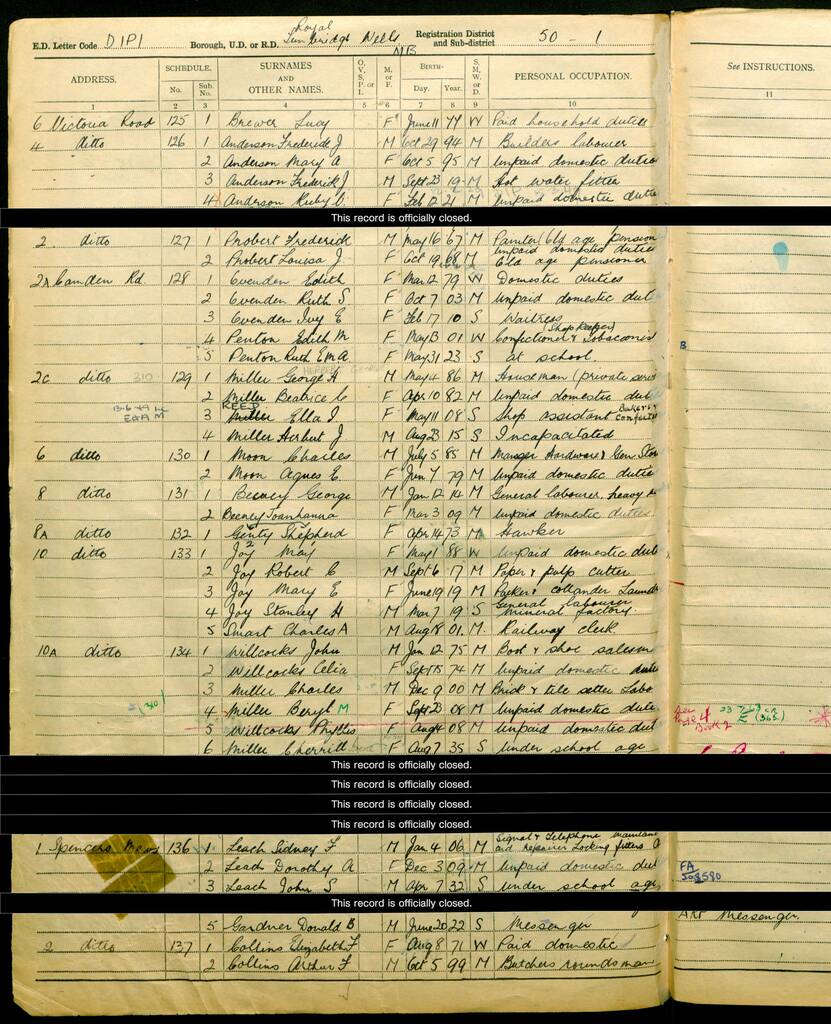 E.D. Letter Code DIPI Borough, U.D. or R.D. Royal Tunbridge Wells MB Registration District and Sub-district 50 - 1
ADDRESS. SCHEDULE. SURNAMES AND OTHER NAMES. O. V.S. P. or I. M. or F. BIRTH— S. M. W. or D. PERSONAL OCCUPATION. See INSTRUCTIONS.
No. Sub. No. Day. Year.
1 2 3 4 5 6 7 8 9 10 11
6 Victoria Road 125 1 Brewer Lucy F June 11 77 W Paid household duties
4 ditto 126 1 Anderson Frederick J M Oct 29 94 M Builders labourer
2 Anderson Mary A F Oct 5 95 M Unpaid domestic duties
3 Anderson Frederick J M Sept 23 19 M Hot water fitter
4 Anderson Ruby V F Feb 12 21 M Unpaid domestic duties
This record is officially closed.
2 ditto 127 1 Probert Frederick M May 16 67 M Painter Old age pension
2 Probert Louisa J F Oct 19 68 M unpaid domestic duties Old age pensioner
2A Camden Rd. 128 1 Evenden Edith F Mar 2 79 W Domestic duties
2 Evenden Ruth S F Oct 7 03 M Unpaid domestic duti
3 Evenden Ivy E F Feb 17 10 S Waitress
4 Penton Edith M F May 13 01 W Confectioner & Tobacconist (Shop Keeper)
5 Penton Ruth E M A F May 31 23 S at school
B
2c ditto 310 129 1 Miller George A M May 4 86 M Houseman (private serv
2 Miller Beatrice C F Apr 10 82 M Unpaid domestic dut
13-6-49 EAAM 3 REED Miller Ella I F May 11 08 S Shop assistant Bakers & confect
4 Miller Herbert J M Aug 23 15 S Incapacitated
6 ditto 130 1 Moon Charles M July 5 85 M Manager Hardware & Gen Stor
2 Moon Agnes E F Jun 7 79 M Unpaid domestic duties
8 ditto 131 1 Beeney George M Jan 12 14 M General labourer, heavy
2 Beeney Joanhanna F Mar 3 09 M Unpaid domestic duties
8A ditto 132 1 Genty Shepherd F Apr 14 73 M Hawker
10 ditto 133 1 Joy May F May 1 88 W Unpaid domestic duti
2 Joy Robert C M Sept 6 17 M Paper & pulp cutter
3 Joy Mary E F June 19 19 M Packer & collander Laundr
4 Joy Stanley H M Mar 7 19 S General labourer mineral factory.
5 Smart Charles A M Aug 18 01 M. Railway clerk
10A ditto 134 1 Willcocks John M Jan 12 75 M Boot & shoe salesm
2 Willcocks Celia F Sept 15 74 M Unpaid domestic dutie
3 Miller Charles M Dec 9 00 M Brick & tile setter Labo
(310) 4 Miller Beryl M F Sept 23 08 M Unpaid domestic dute
5 Willcocks Phyllis F Aug 4 08 M unpaid domestic dut
6 Miller Cherrill F Aug 7 35 S Under school age
This record is officially closed.
This record is officially closed.
This record is officially closed.
This record is officially closed.
1 Spencers Mews 136 1 Leach Sidney F M Jan 4 06 M Signal & Telephone maintane aid repairer Locking fitters
2 Leach Dorothy A F Dec 3 09 M Unpaid domestic dut
3 Leach John S M Apr 7 32 S Under school age
FA
508580
This record is officially closed.
5 Gardner Donald B M June 20 22 S Messenger ARP Messenger.
2 ditto 137 1 Collins Elizabeth F F Aug 8 71 W Paid domestic
2 Collins Arthur F M Oct 5 99 M Butchers roundsman